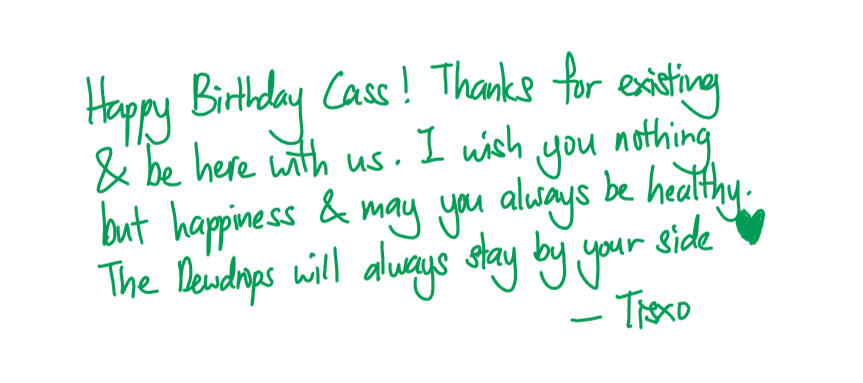 Happy Birthday Cass! Thanks for existing
& be here with us. I wish you nothing
but happiness & may you always be healthy.
The Dewdrops will always stay by your side ♥
— Tisxo